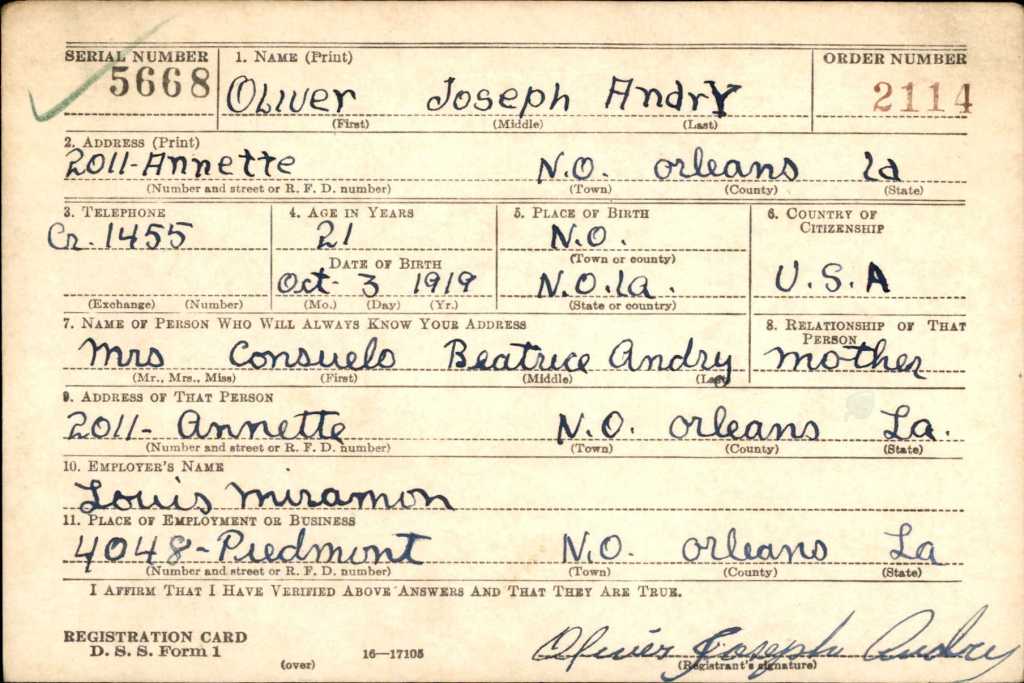 SERIAL NUMBER 1. NAME (Print) ORDER NUMBER
5668 Oliver Joseph Andry 2114
(First) (Middle) (Last)
2. ADDRESS (Print)
2011-Annette N.O. orleans la
(Number and street or R. F. D. number) (Town) (County) (State)
3. TELEPHONE 4. AGE IN YEARS 5. PLACE OF BIRTH 6. COUNTRY OF CITIZENSHIP
Cr. 1455 21 N.O.
DATE OF BIRTH (Town or county)
Oct- 3 1919 N.O. la. U.S.A
(Exchange) (Number) (Mo.) (Day) (Yr.) (State or country)
7. NAME OF PERSON WHO WILL ALWAYS KNOW YOUR ADDRESS 8. RELATIONSHIP OF THAT PERSON
Mrs Consuelo Beatrice Andry mother
(Mr., Mrs., Miss) (First) (Middle) (Last)
9. ADDRESS OF THAT PERSON
2011- Annette N.O. orleans La.
(Number and street or R. F. D. number) (Town) (County) (State)
10. EMPLOYER'S NAME
Louis Miramon
11. PLACE OF EMPLOYMENT OR BUSINESS
4048-Piedmont N.O. orleans La
(Number and street or R. F. D. number) (Town) (County) (State)
I AFFIRM THAT I HAVE VERIFIED ABOVE ANSWERS AND THAT THEY ARE TRUE.
REGISTRATION CARD Oliver Joseph Andry
D. S. S. Form 1 (over) 16—17105 (Registrant's signature)